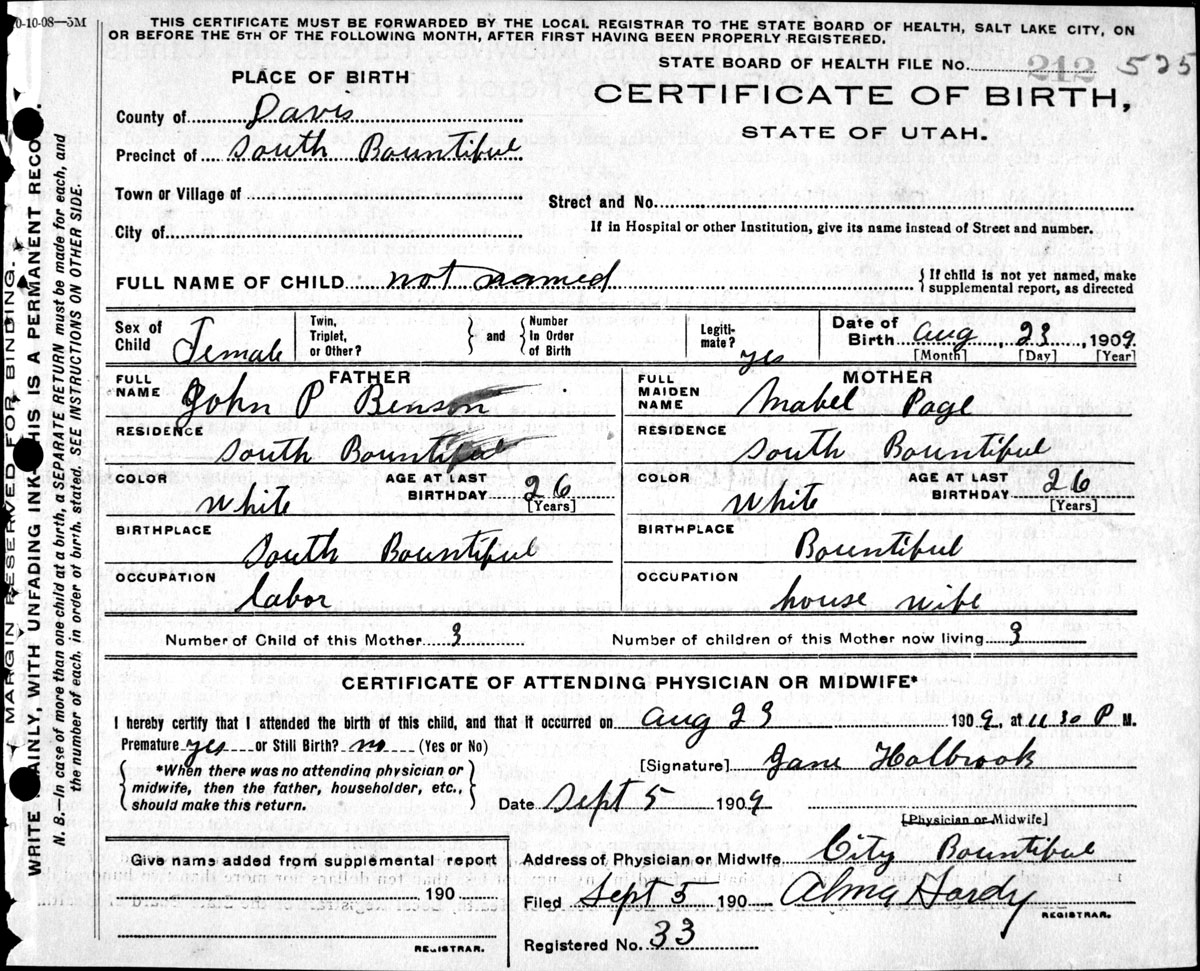 0-10-08—5M
THIS CERTIFICATE MUST BE FORWARDED BY THE LOCAL REGISTRAR TO THE STATE BOARD OF HEALTH, SALT LAKE CITY, ON
OR BEFORE THE 5TH OF THE FOLLOWING MONTH, AFTER FIRST HAVING BEEN PROPERLY REGISTERED.
STATE BOARD OF HEALTH FILE No. 212 525
PLACE OF BIRTH
CERTIFICATE OF BIRTH,
STATE OF UTAH.
County of Davis
Precinct of South Bountiful
Town or Village of
Street and No.
City of
If in Hospital or other Institution, give its name instead of Street and number.
FULL NAME OF CHILD not named
{If child is not yet named, make
supplemental report, as directed
Sex of Child Female
Twin, Triplet, or Other? } and { Number In Order of Birth
Legiti-mate? yes
Date of Birth Aug, 23, 1909
[Month] [Day] [Year]
FATHER
FULL NAME John P Benson
RESIDENCE South Bountiful
COLOR White
AGE AT LAST BIRTHDAY 26
[Years]
BIRTHPLACE South Bountiful
OCCUPATION Labor
MOTHER
FULL MAIDEN NAME Mabel Page
RESIDENCE South Bountiful
COLOR White
AGE AT LAST BIRTHDAY 26
[Years]
BIRTHPLACE Bountiful
OCCUPATION house wife
Number of Child of this Mother 3
Number of children of this Mother now living 3
CERTIFICATE OF ATTENDING PHYSICIAN OR MIDWIFE*
I hereby certify that I attended the birth of this child, and that it occurred on Aug 23 1909, at 11 30 P M.
Premature yes or Still Birth? no (Yes or No)
{*When there was no attending physician or
midwife, then the father, householder, etc.,
should make this return.}
[Signature] Jane Holbrook
Date Sept 5 1909
[Physician or Midwife]
Give name added from supplemental report
190
REGISTRAR.
Address of Physician or Midwife City Bountiful
Filed Sept 5 190 Alma Hardy
REGISTRAR.
Registered No. 33
MARGIN RESERVED FOR BINDING.
WRITE PLAINLY, WITH UNFADING INK—THIS IS A PERMANENT RECORD.
N. B.—In case of more than one child at a birth, a SEPARATE RETURN must be made for each, and
the number of each, in order of birth, stated. SEE INSTRUCTIONS ON OTHER SIDE.